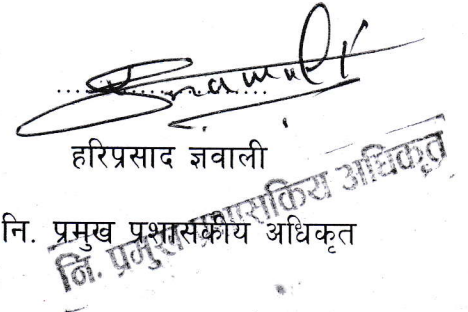 हरिप्रसाद ज्ञवाली
नि. प्रमुख प्रशासकीय अधिकृत
नि. प्रमुख प्रशासकिय अधिकृत